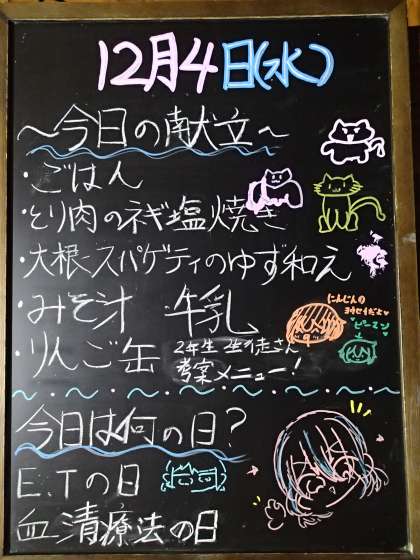 12月4日(水)
～今日の献立～
・ごはん
・とり肉のネギ塩焼き
・大根とスパゲティのゆず和え
・みそ汁 ・牛乳
・りんご缶
2年生 生徒さん
考案メニュー！
にんじんの
ピーマン
今日は何の日？
E.Tの日
血清療法の日